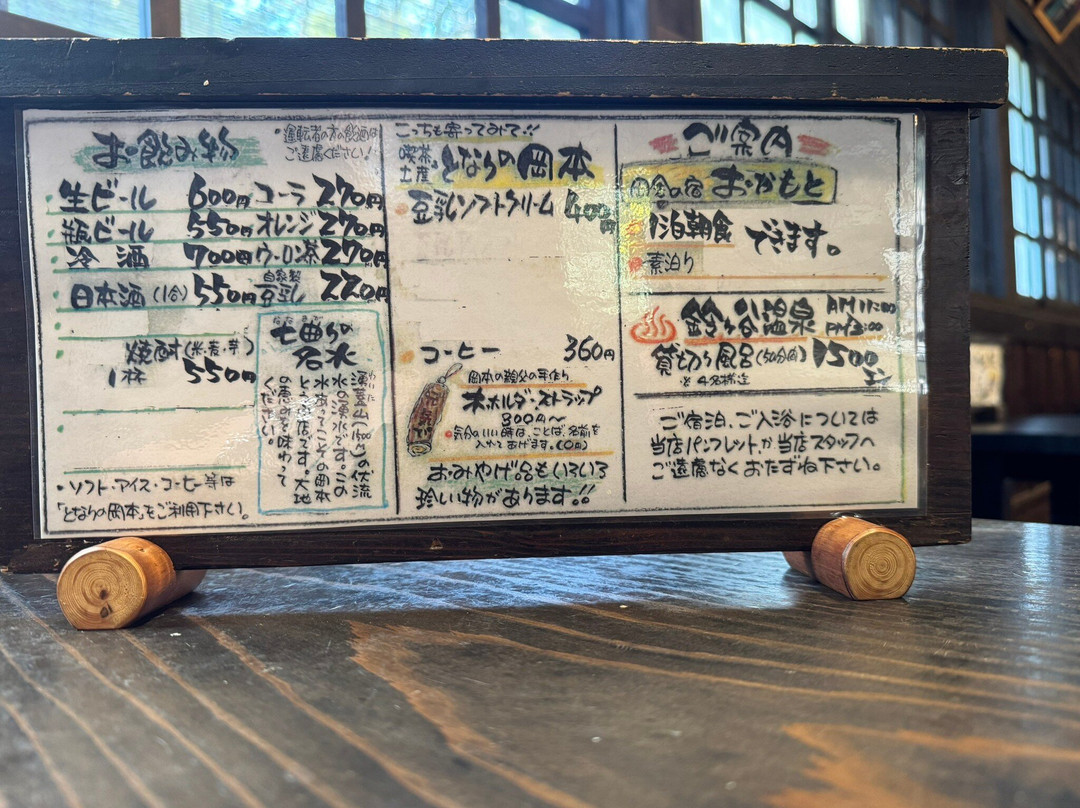 お飲み物
・運転者の方の飲酒は
ご遠慮ください!
生ビール 600円
瓶ビール 550円
冷酒 700円
日本酒(1合) 550円
焼酎(米・麦・芋)
1杯 550円
コーラ 270円
オレンジ 270円
ウーロン茶 270円
自家製
豆乳 220円
七曲りの
名水
涌蓋山(1500m)の伏流
水の湧水です。この
水あってこその岡本
とうふ店です。大地
の恵みを味わって
ください。
・ソフト・アイス・コーヒー等は
「となりの岡本」をご利用下さい。
こっちも寄ってみて!!
喫茶
土産 となりの岡本
豆乳ソフトクリーム 400円
コーヒー 360円
岡本の親父の手作り
木ホルダ・ストラップ
800円〜
気分のいい時は、ことば、名前を
入れてあげます。(0円)
おみやげ品もいろいろ
珍しい物があります!!
ご案内
田舎の宿 おかもと
1泊朝食 できます。
素泊り
鈴ヶ谷温泉 AM11:00
貸切り風呂(50分間) ¥1500
※4名様迄
ご宿泊、ご入浴については
当店パンフレットか当店スタッフへ
ご遠慮なくおたずね下さい。